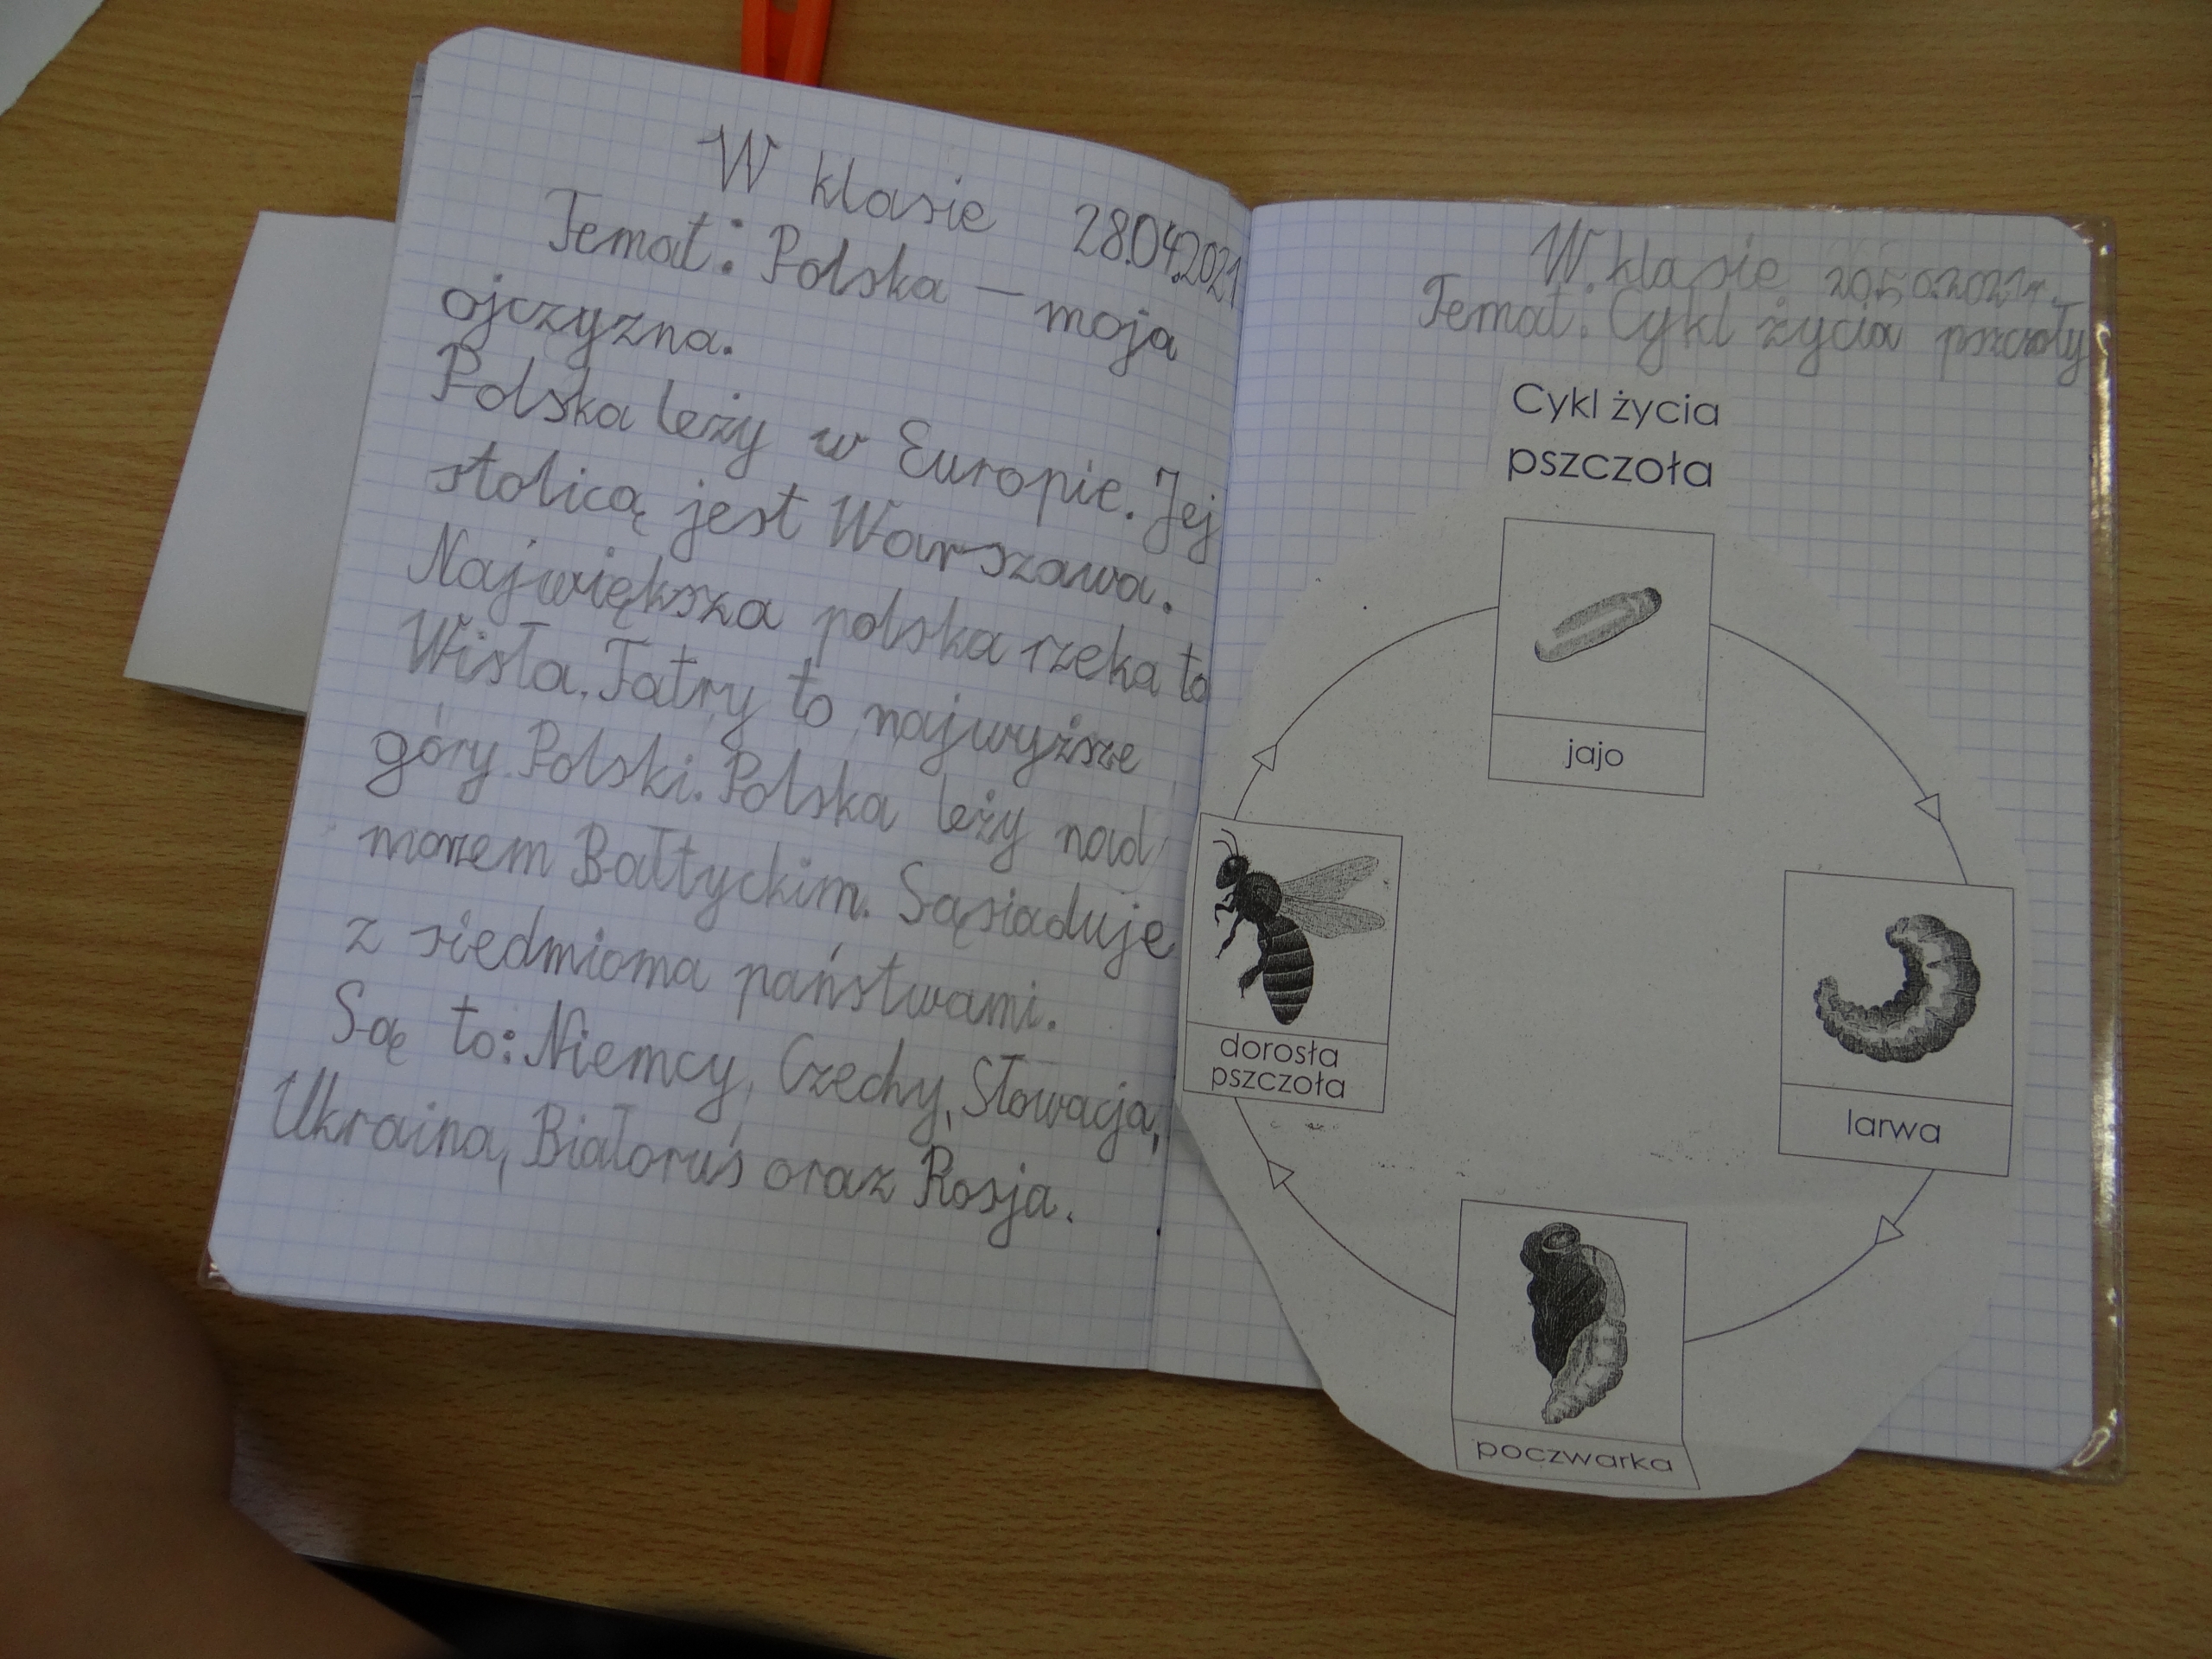 W klasie 28.04.2021
Temat: Polska – moja
ojczyzna.
Polska leży w Europie. Jej
stolicą jest Warszawa.
Największa polska rzeka to
Wisła. Tatry to najwyższe
góry Polski. Polska leży nad
morzem Bałtyckim. Sąsiaduje
z siedmioma państwami.
Są to: Niemcy, Czechy, Słowacja,
Ukraina, Białoruś oraz Rosja.
W klasie
Temat: Cykl życia pszczoły
Cykl życia
pszczoła
jajo
larwa
poczwarka
dorosła
pszczoła